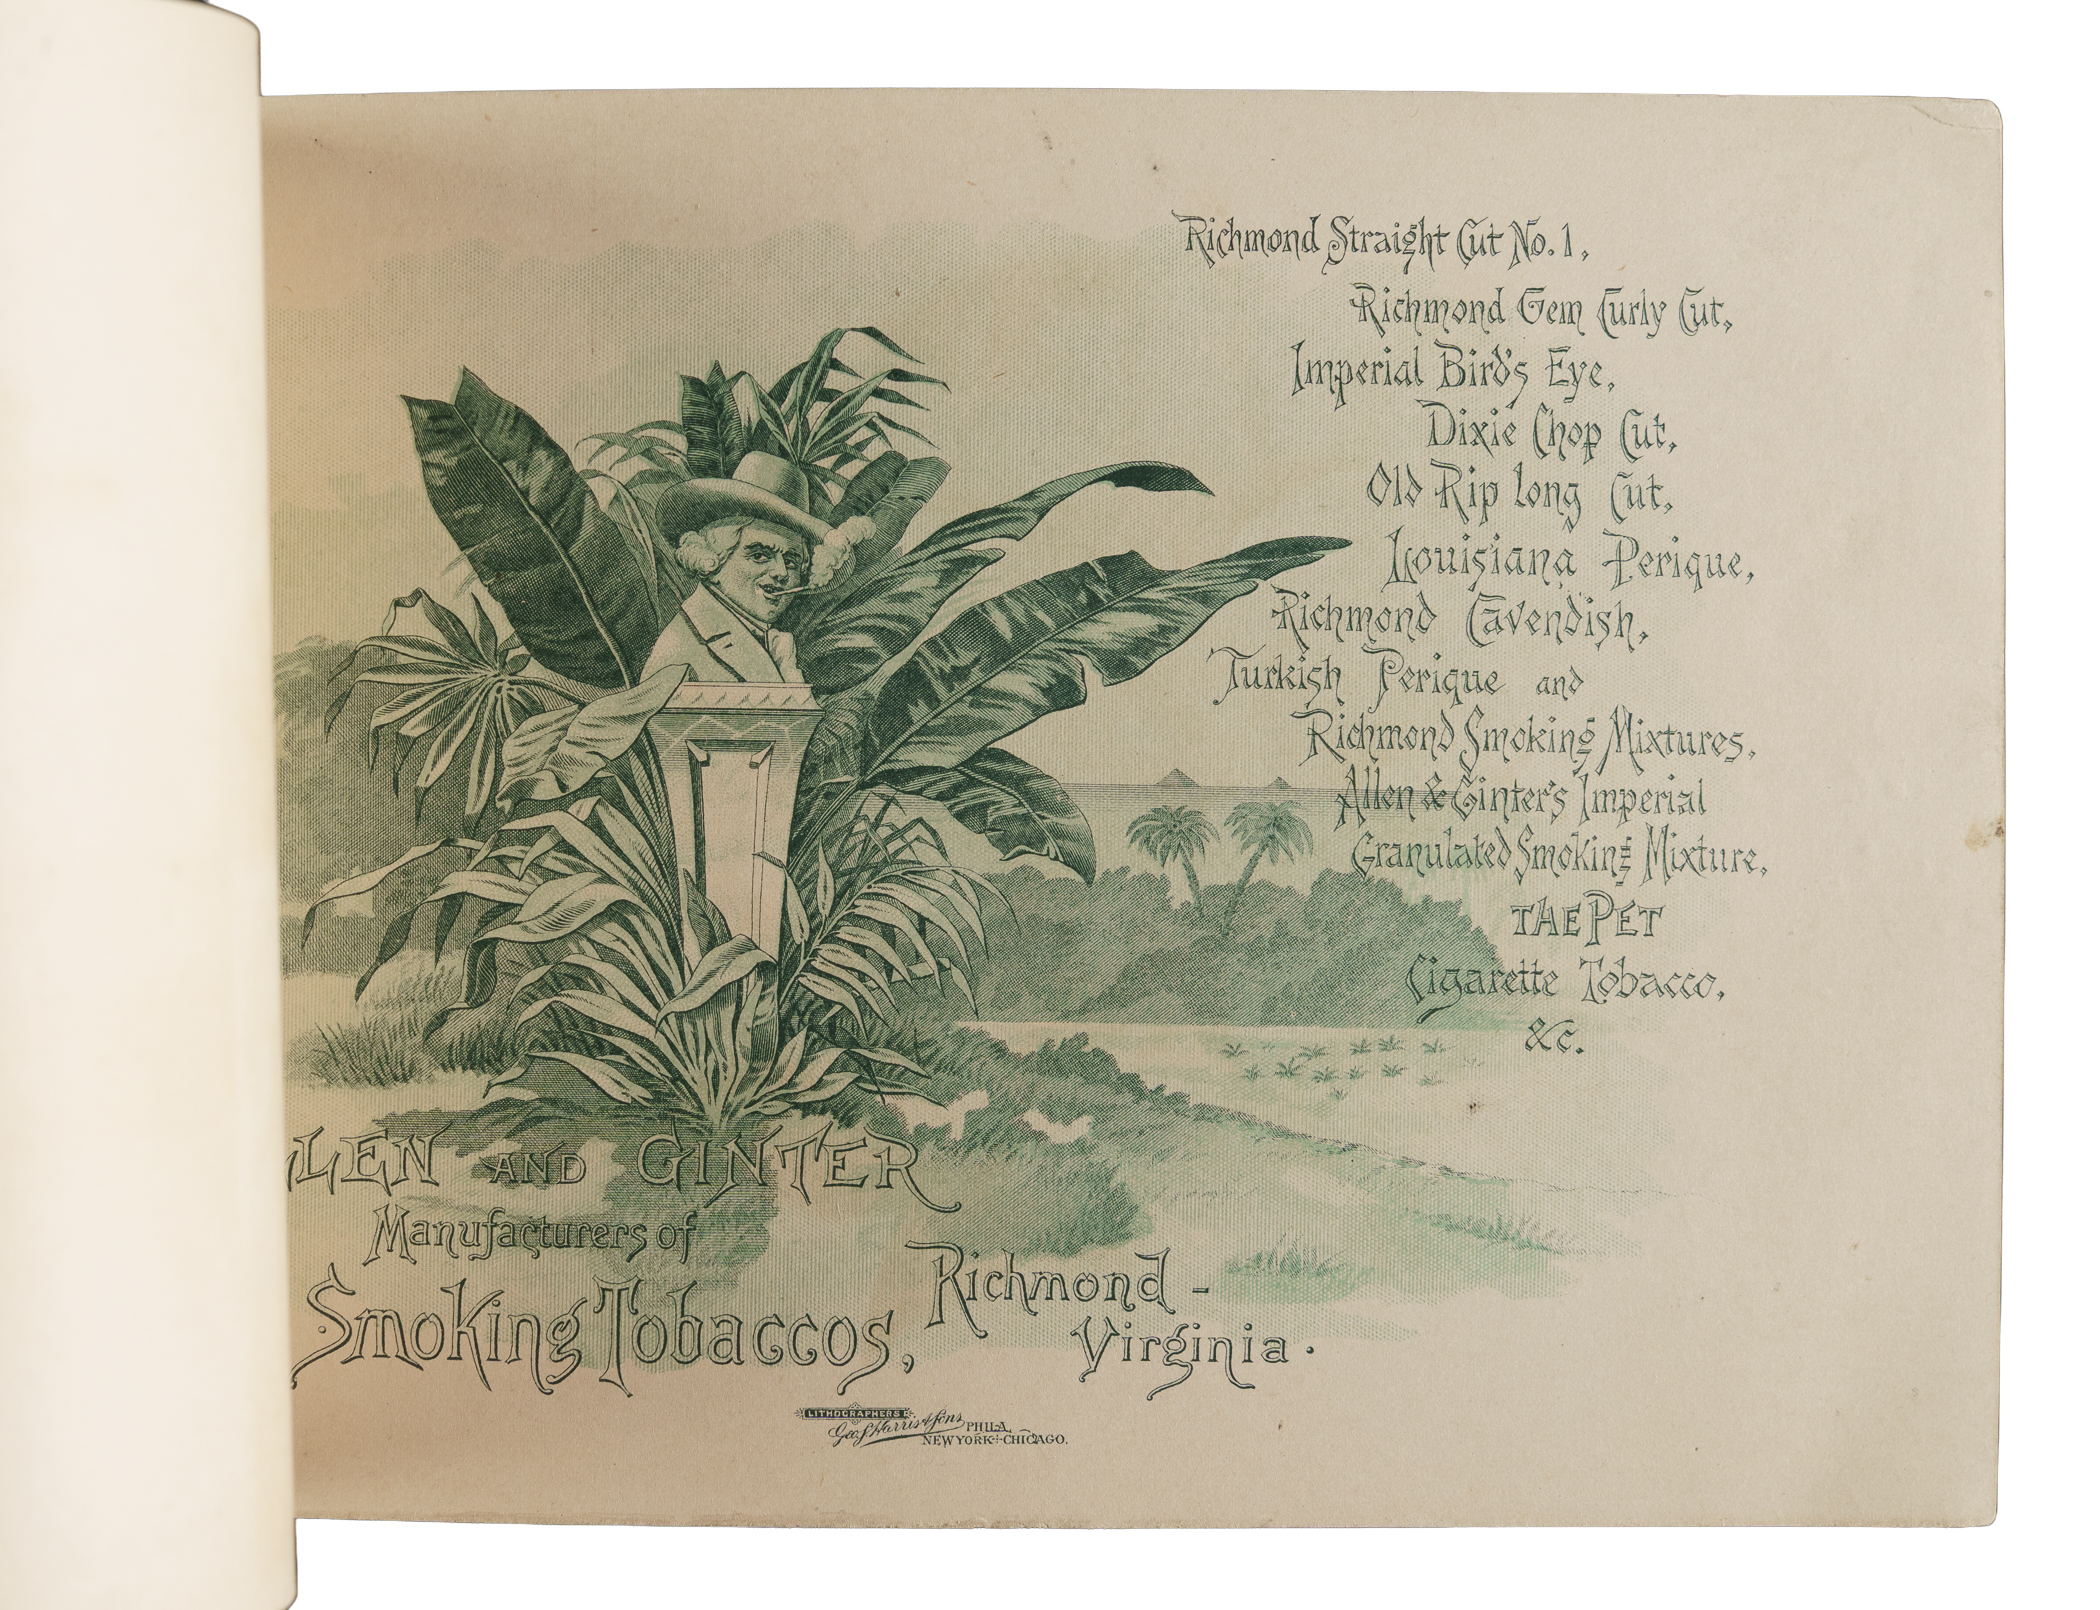 Richmond Straight Cut No. 1,
Richmond Gem Curly Cut,
Imperial Bird's Eye,
Dixie Chop Cut,
Old Rip Long Cut,
Louisiana Perique,
Richmond Cavendish,
Turkish Perique and
Richmond Smoking Mixtures,
Allen & Ginter's Imperial
Granulated Smoking Mixture,
THE PET
Cigarette Tobacco,
&c.
LEN AND GINTER
Manufacturers of
Smoking Tobaccos,
Richmond -
Virginia.
LITHOGRAPHERS
Geo. S. Harris & Sons PHILA.
NEW YORK + CHICAGO.